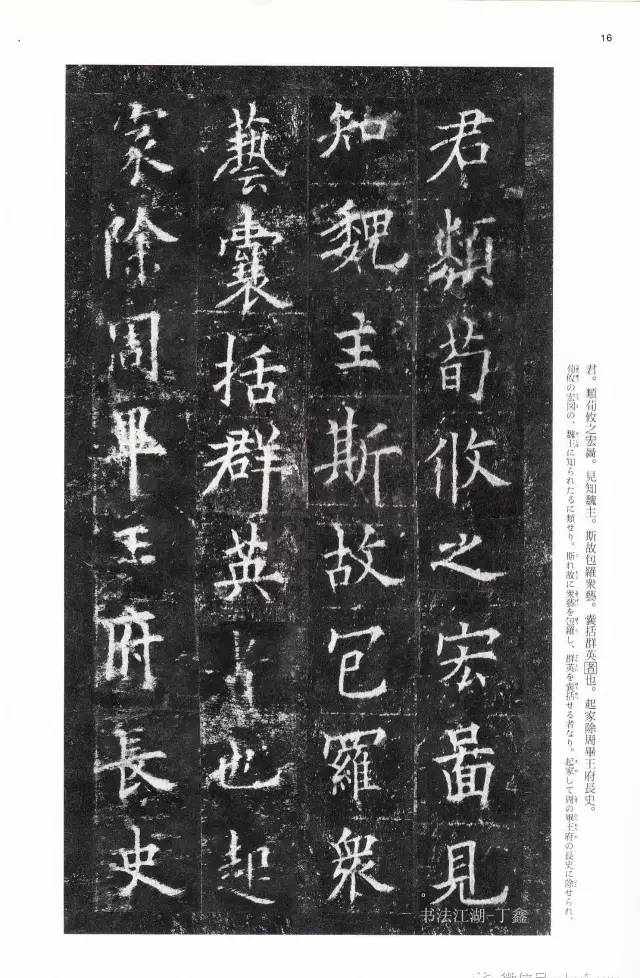 16
君類荀攸之宏啚見
知魏主斯故包羅衆
藝囊括群英者也起
家除周畢王府長史
君。類荀攸之宏啚。見知魏主。斯故包羅衆藝。囊括群英者也。起家除周畢王府長史。
荀攸の宏図の、魏主に知られたるに類せり。斯れ故に衆藝を包羅し、群英を囊括せる者なり。起家して周の畢王府の長史に除せられ、
书法江湖-丁鑫